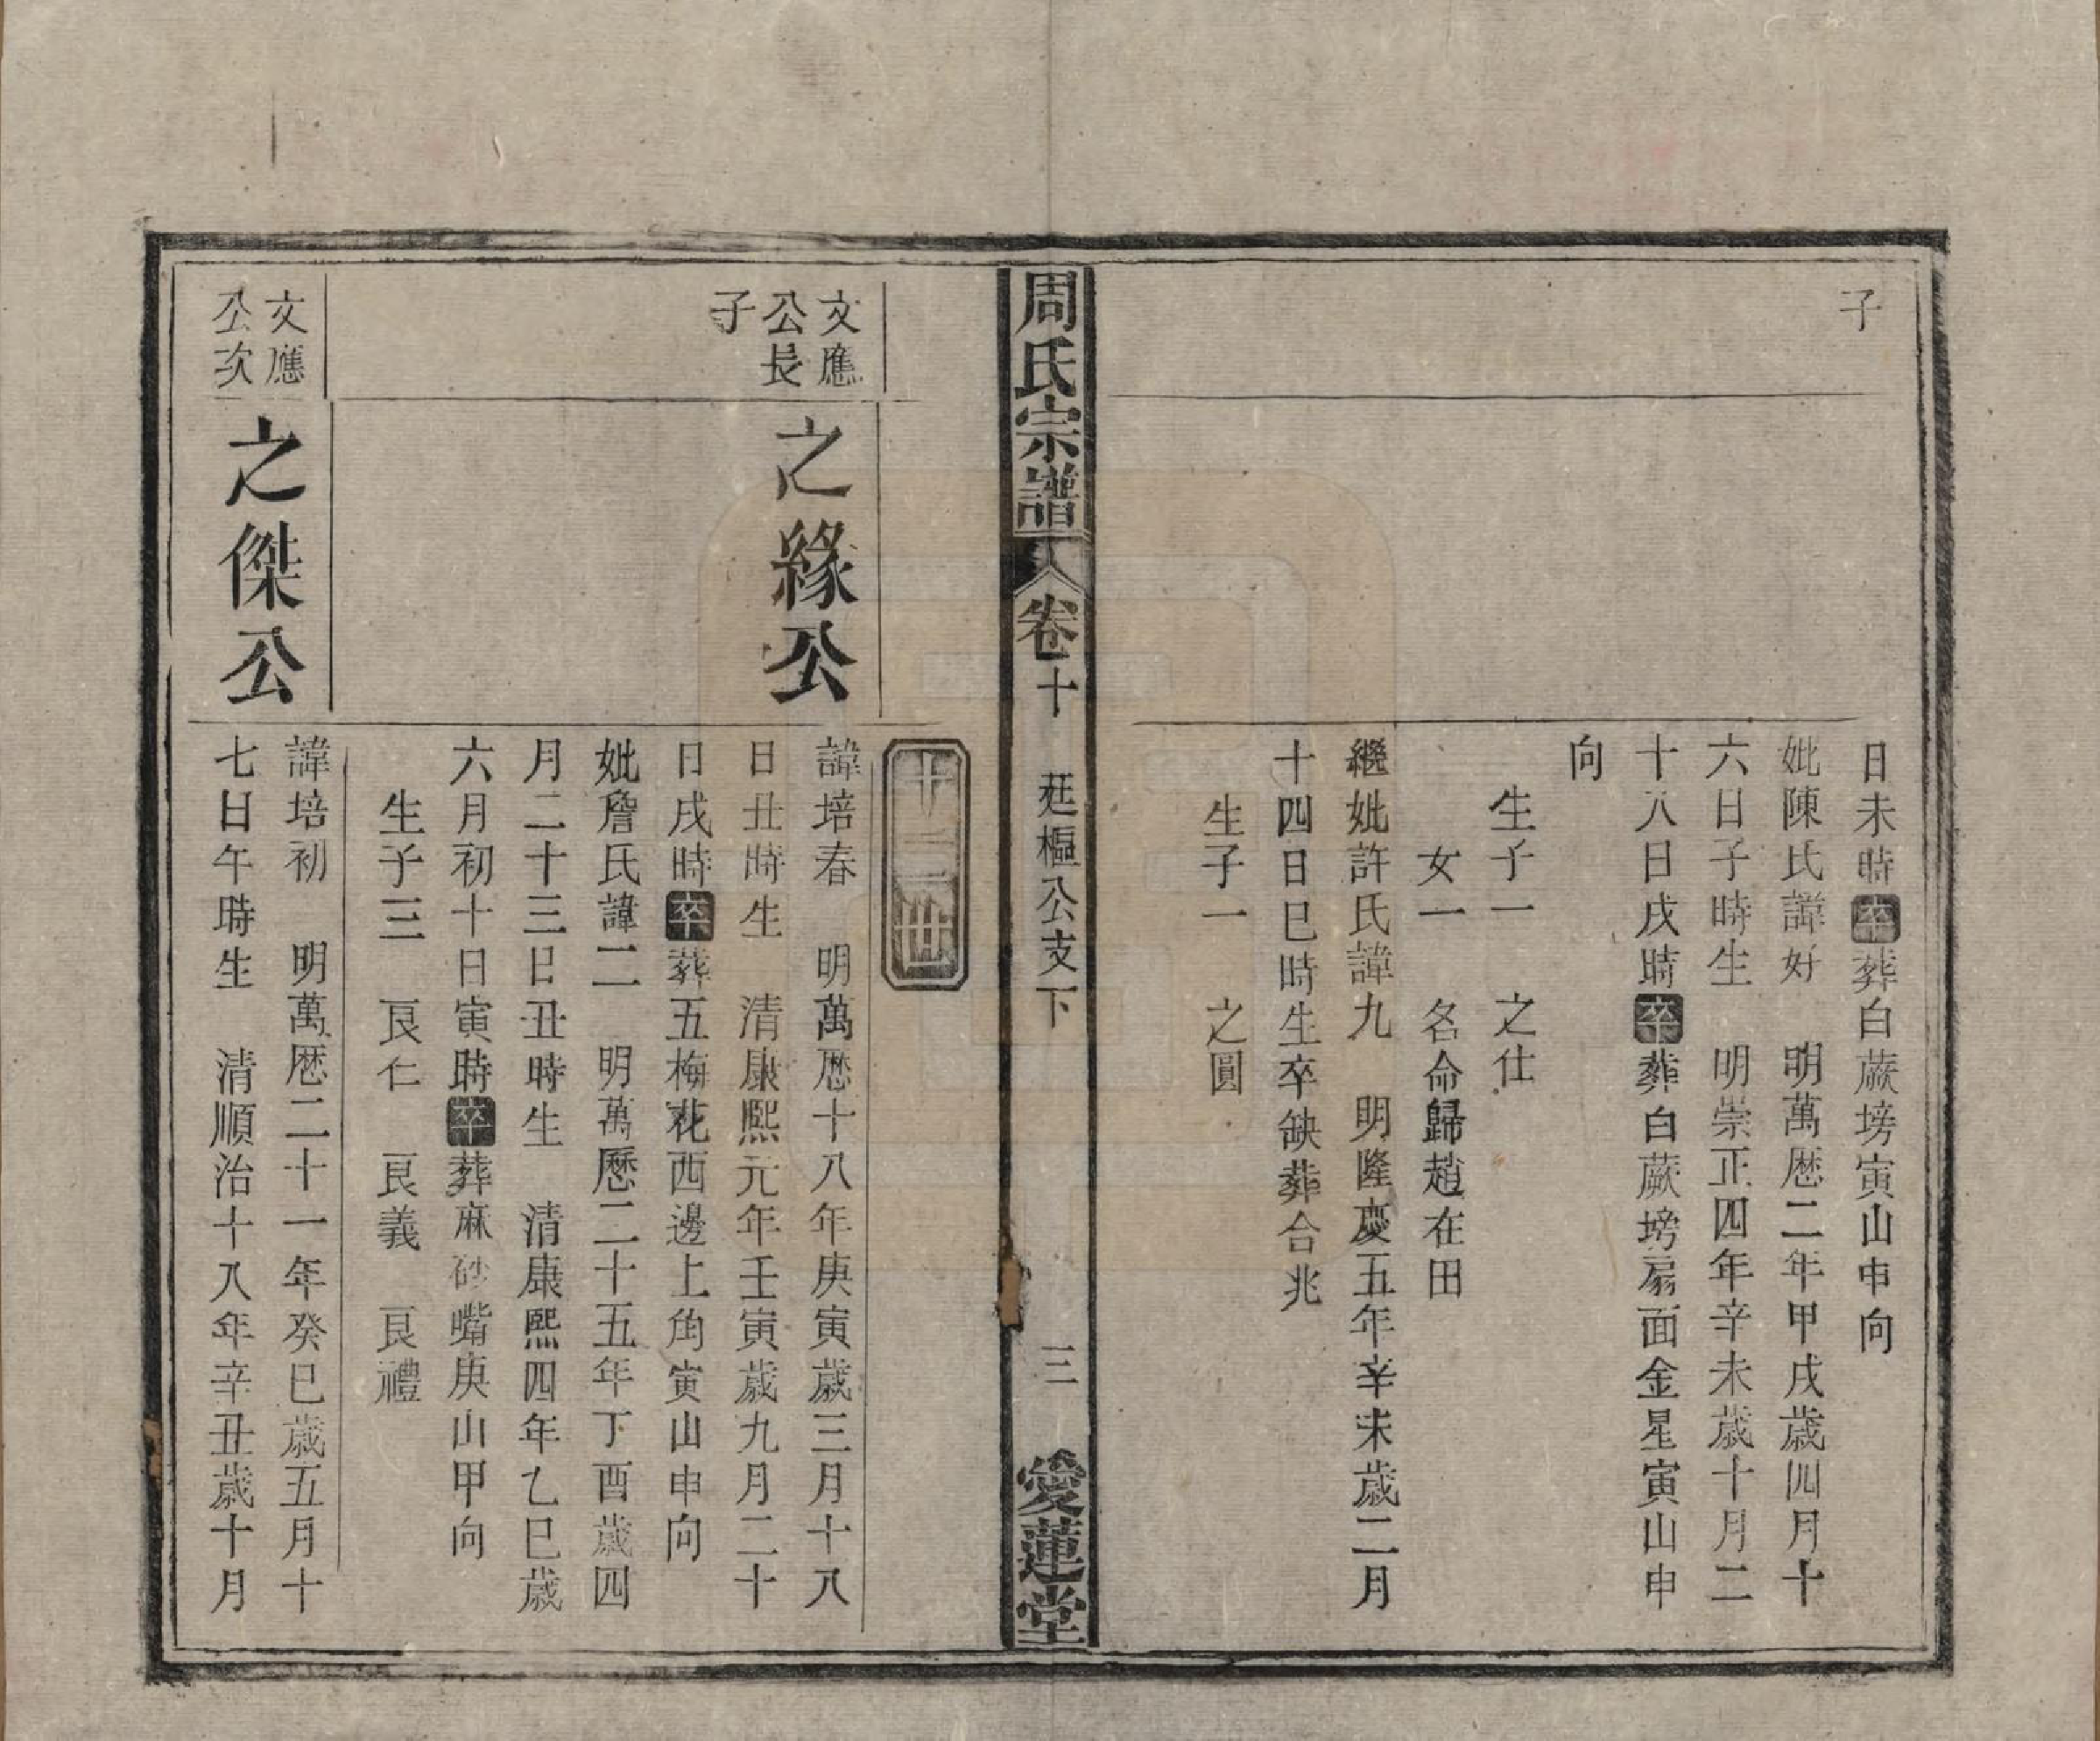 子
日未時卒葬白蕨塝寅山申向
妣陳氏諱好　明萬厯二年甲戌歳四月十
六日子時生　明崇正四年辛未歳十月二
十八日戌時卒葬白蕨塝扇面金星寅山申
向
生子一　之仕
女一　名命歸趙在田
繼妣許氏諱九　明隆慶五年辛未歳二月
十四日巳時生卒缺葬合兆
生子一　之圓
周氏宗譜
卷十　廷樞公支下　三　愛蓮堂
十三世
文應
公長
子
之緣公
諱培春　明萬厯十八年庚寅歳三月十八
日丑時生　清康熙元年壬寅歳九月二十
日戌時卒葬五梅花西邊上角寅山申向
妣詹氏諱二　明萬歷二十五年丁酉歳四
月二十三日丑時生　清康熙四年乙巳歳
六月初十日寅時卒葬麻砂嘴庚山甲向
生子三　良仁　良義　良禮
文應
公次
之傑公
諱培初　明萬厯二十一年癸巳歳五月十
七日午時生　清順治十八年辛丑歳十月